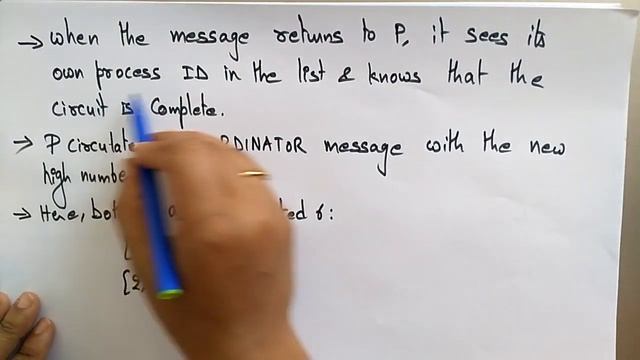 → when the message returns to P, it sees its
own process ID in the list & knows that the
circuit is complete.
→ P circulate RDINATOR message with the new
high numbe
→ Here, bot ted 6:
[
[2,